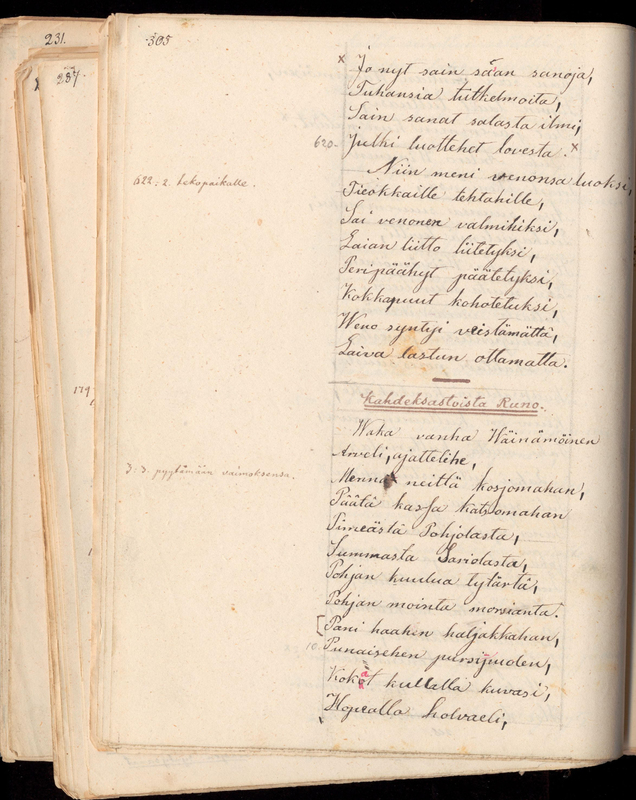 231.
287.
305
x Jo nyt sain sa'an sanoja,
Tuhansia tutkelmoita,
Sain sanat salasta ilmi,
620. Julki luottehet lovesta. x
Niin meni venonsa luoksi,
622: 2. tekopaikalle.
Tieokkaille tehtahille,
Sai venonen valmihiksi,
Laian liitto liitetyksi,
Peripäähyt päätetyksi,
Kokkapuut kohotetuksi,
Weno syntyi veistämättä,
Laiva lastun ottamatta.
174
Kahdeksastoista Runo.
Waka vanha Wäinämöinen
Arveli, ajattelihe,
3: 3. pyytämään vaimoksensa.
Mennä neittä kosjomahan,
Päätä kassa katsomahan
Pimeästä Pohjolasta,
Summasta Sariolasta,
Pohjan kuulua tytärtä,
Pohjan mointa morsianta.
[Pani haahen haljakkahan,
10. Punaisehen pursipuolen,
Kokat kullalla kuvasi,
Hopealla holvaeli,